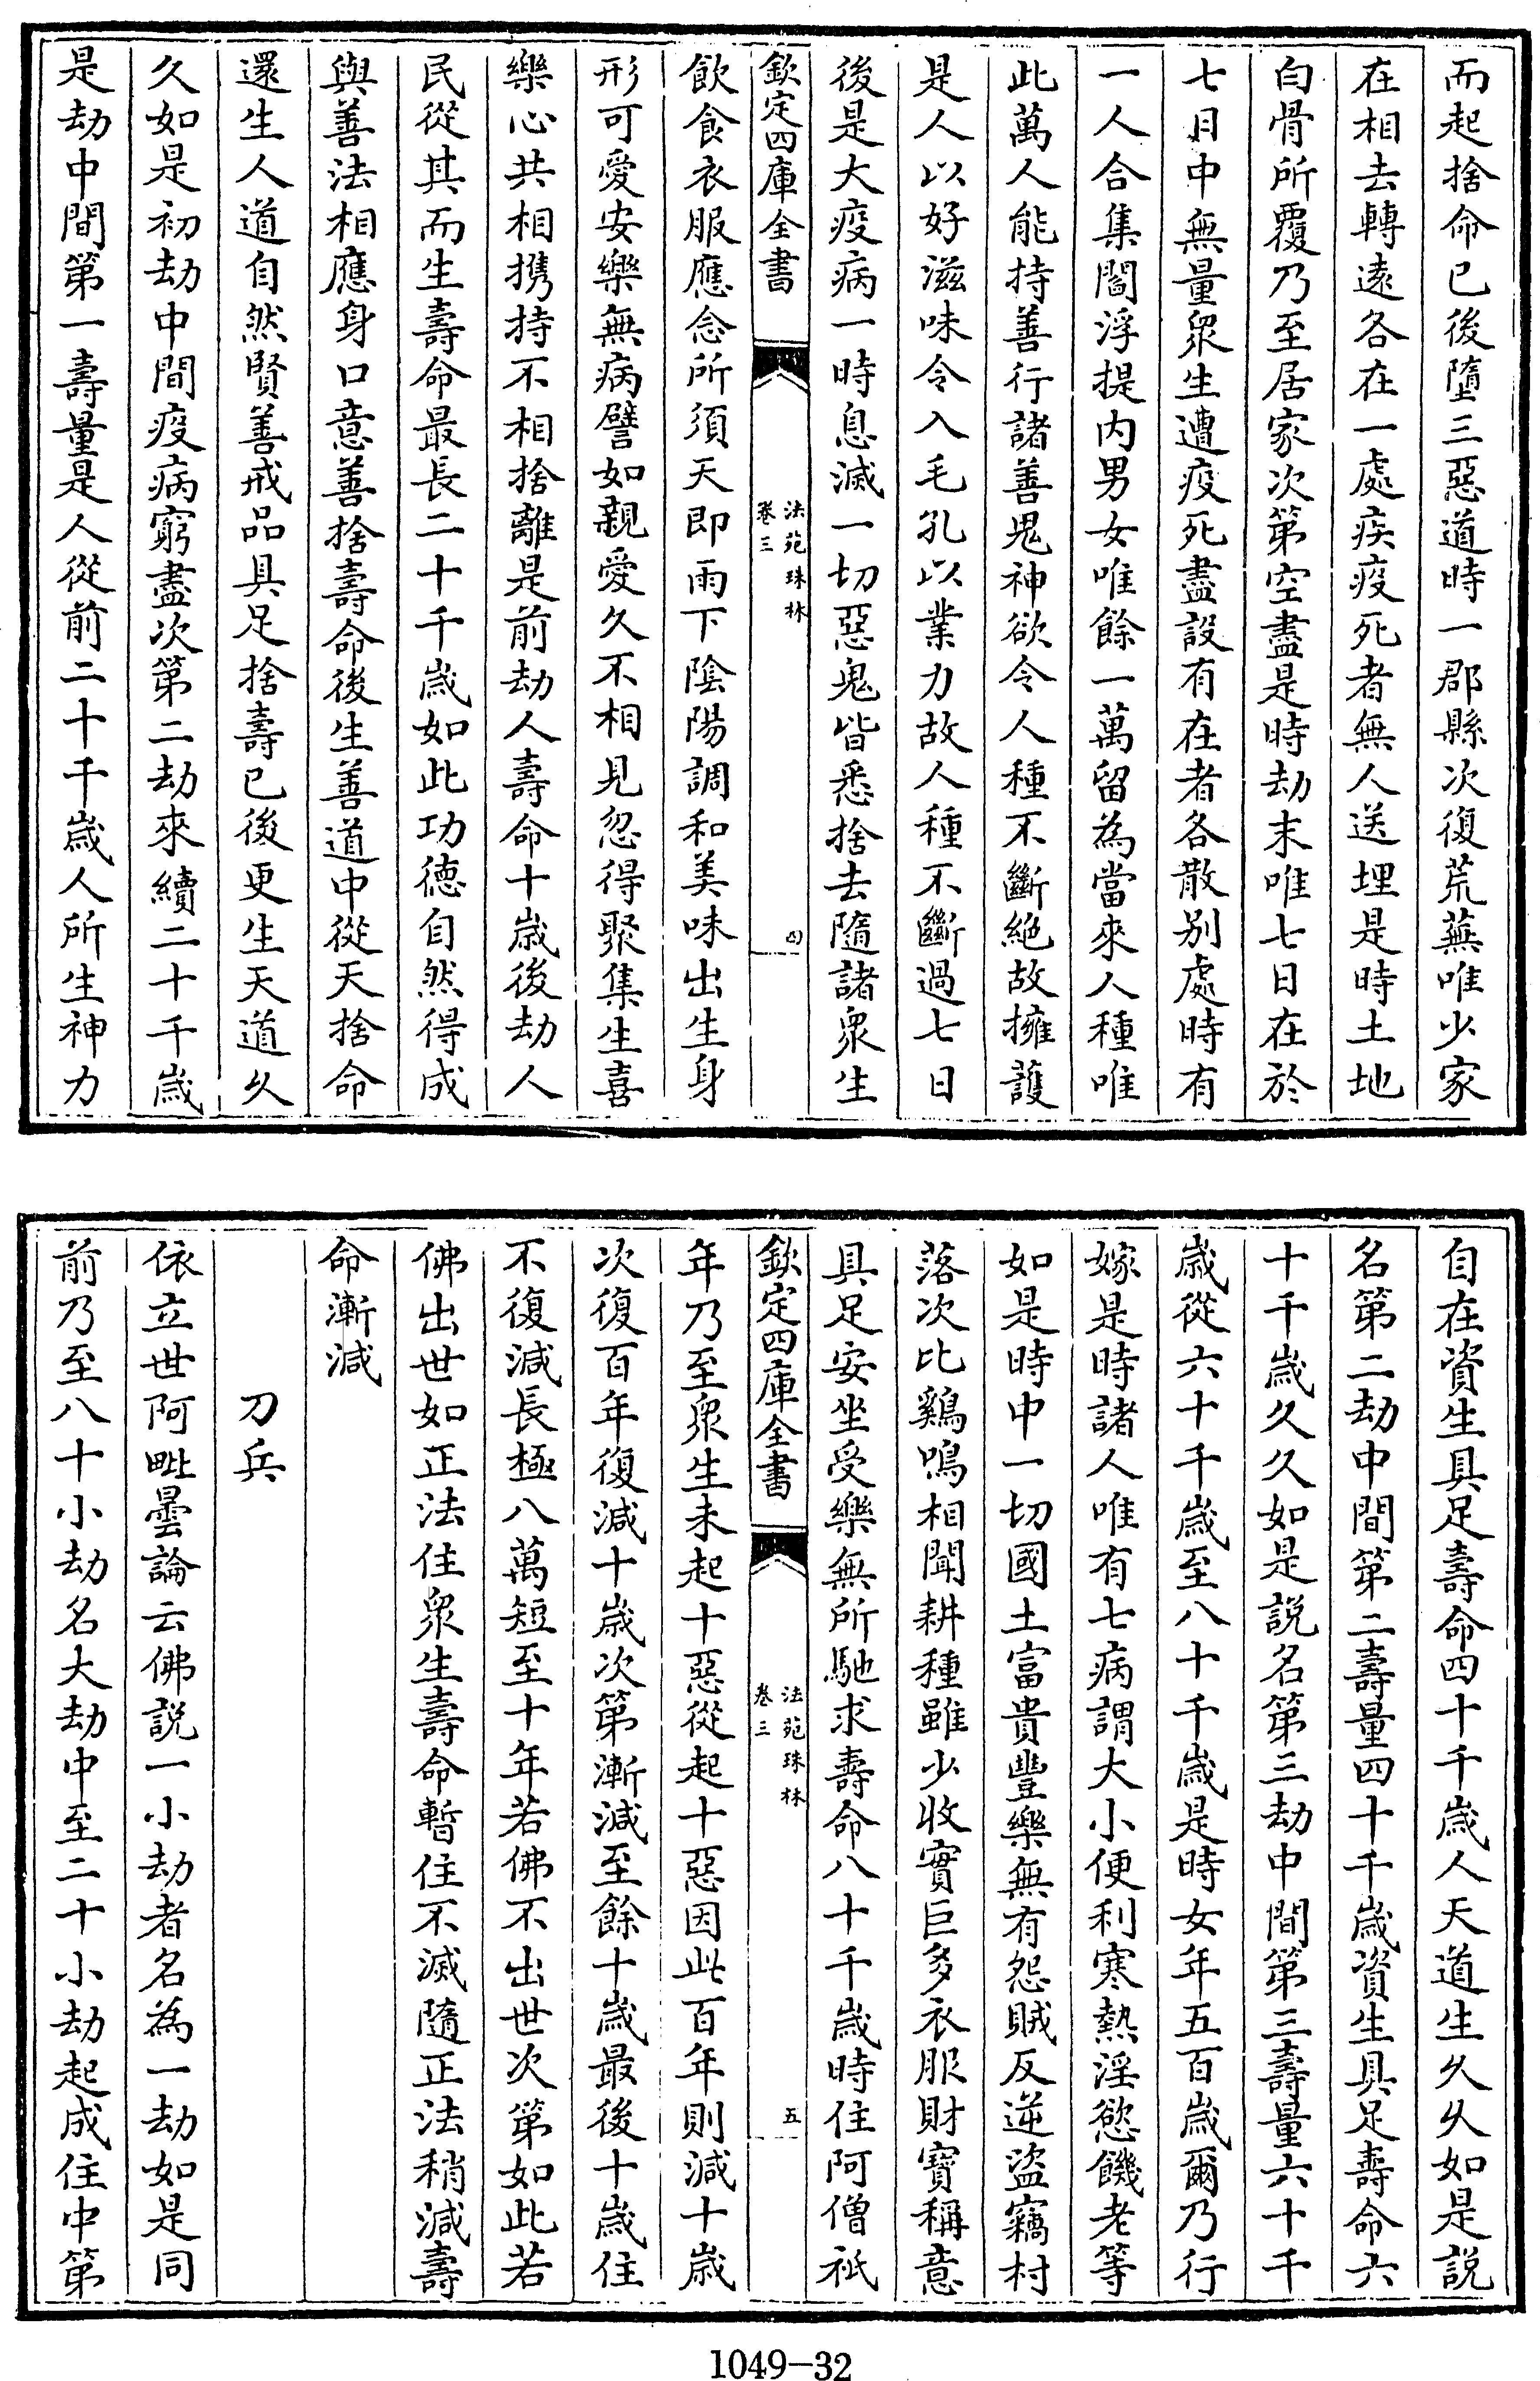 而起捨命已後墮三惡道時一郡縣次復荒蕪唯少家
在相去轉遠各在一處疾疫死者無人送埋是時土地
白骨所覆乃至居家次第空盡是時劫末唯七日在於
七日中無量衆生遭疫死盡設有在者各散别處時有
一人合集閻浮提内男女唯餘一萬留為當來人種唯
此萬人能持善行諸善鬼神欲令人種不斷絶故擁護
是人以好滋味令入毛孔以業力故人種不斷過七日
後是大疫病一時息滅一切惡鬼皆悉捨去隨諸衆生
欽定四庫全書
法苑珠林
卷三
四
飲食衣服應念所須天即雨下陰陽調和美味出生身
形可愛安樂無病譬如親愛久不相見忽得聚集生喜
樂心共相携持不相捨離是前劫人壽命十歳後劫人
民從其而生壽命最長二十千歳如此功德自然得成
與善法相應身口意善捨壽命後生善道中從天捨命
還生人道自然賢善戒品具足捨壽已後更生天道久
久如是初劫中間疫病窮盡次第二劫來續二十千歳
是劫中間第一壽量是人從前二十千歳人所生神力
自在資生具足壽命四十千歳人天道生久久如是説
名第二劫中間第二壽量四十千歳資生具足壽命六
十千歳久久如是説名第三劫中間第三壽量六十千
歳從六十千歳至八十千歳是時女年五百歳爾乃行
嫁是時諸人唯有七病謂大小便利寒熱淫慾饑老等
如是時中一切國土富貴豐樂無有怨賊反逆盜竊村
落次比鷄鳴相聞耕種雖少收實巨多衣服財寶稱意
具足安坐受樂無所馳求壽命八十千歳時住阿僧祇
欽定四庫全書
法苑珠林
卷三
五
年乃至衆生未起十惡從起十惡因此百年則減十歳
次復百年復減十歳次第漸減至餘十歳最後十歳住
不復減長極八萬短至十年若佛不出世次第如此若
佛出世如正法住衆生壽命暫住不滅隨正法稍減壽
命漸減
刀兵
依立世阿毗曇論云佛説一小劫者名為一劫如是同
前乃至八十小劫名大劫中至二十小劫起成住中第
1049-32